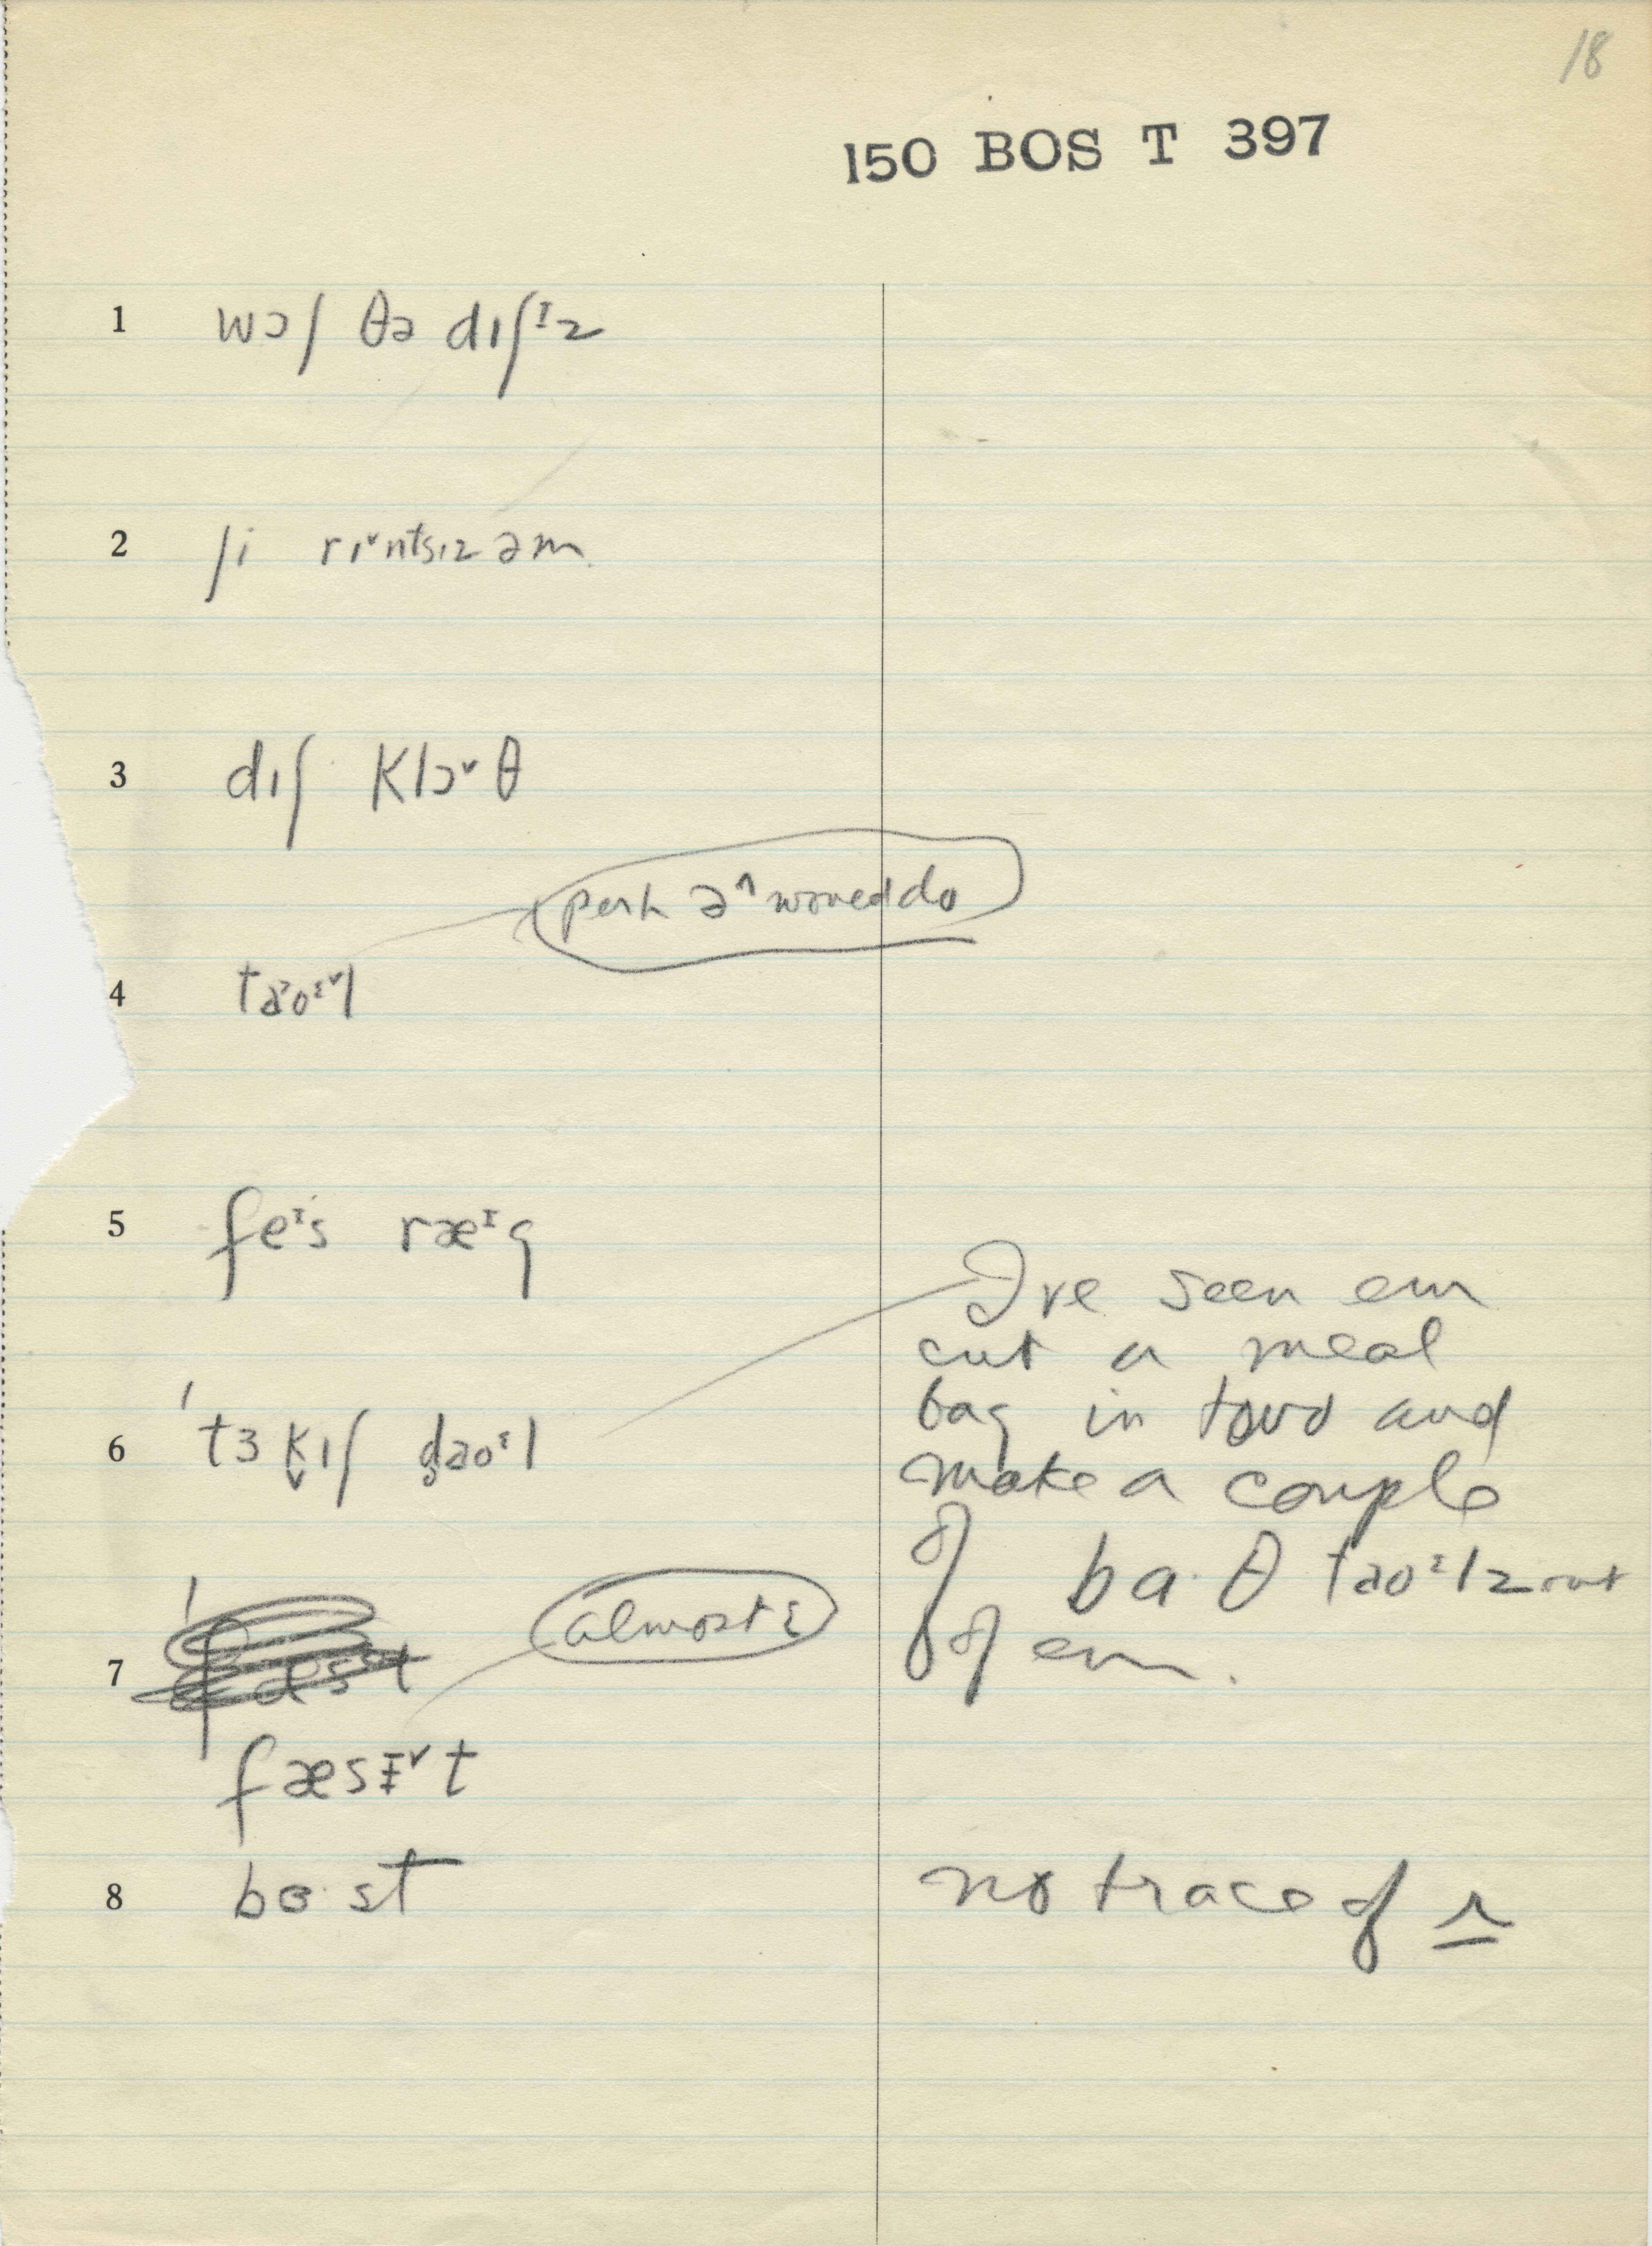 18
150 BOS T 397
1 wɔʃ θə dɪʃᶦz
2 ʃi rɪ˅ntsɪz əm
3 dɪʃ klɔ˅θ
perh ə^ would do
4 taoᶦ˅l
5 feᶦs ræᶦg
I've seen em
cut a meal
bag in two and
6 ˈtɜkɪʃ daoᶦl
make a couple
of ba·θ taoᶦlz out
almost i
of em.
7
fæsɪ˅t
8 bɵ·st no trace of r